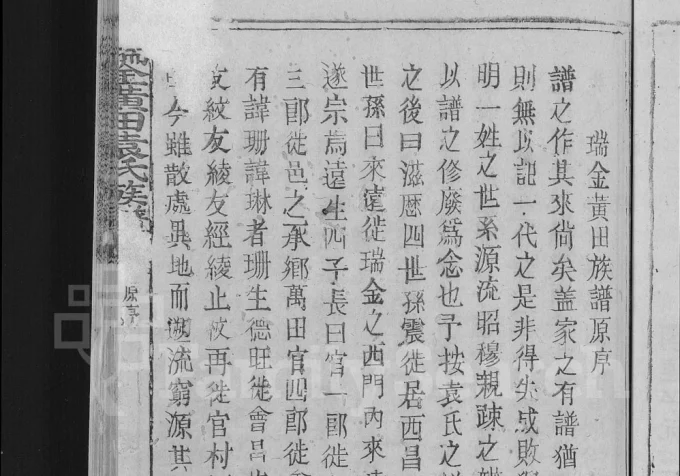 瑞金黃田族譜原序
譜之作其來尙矣盖家之有譜猶
則無以記一代之是非得失成敗
明一姓之世系源流昭穆親疎之
以譜之修廢爲念也予按袁氏之
之後曰滋歷四世孫震徙居西昌
世孫曰來遠徙瑞金之西門內來
遂宗爲遠生四子長曰官一郎徙
三郎徙邑之承鄉萬田官四郎徙
有諱珊諱琳者珊生德旺徙會昌
友紋友綾友經綾止攸再徙官村
今雖散處異地而溯流窮源其
金黃田袁氏族譜
原序